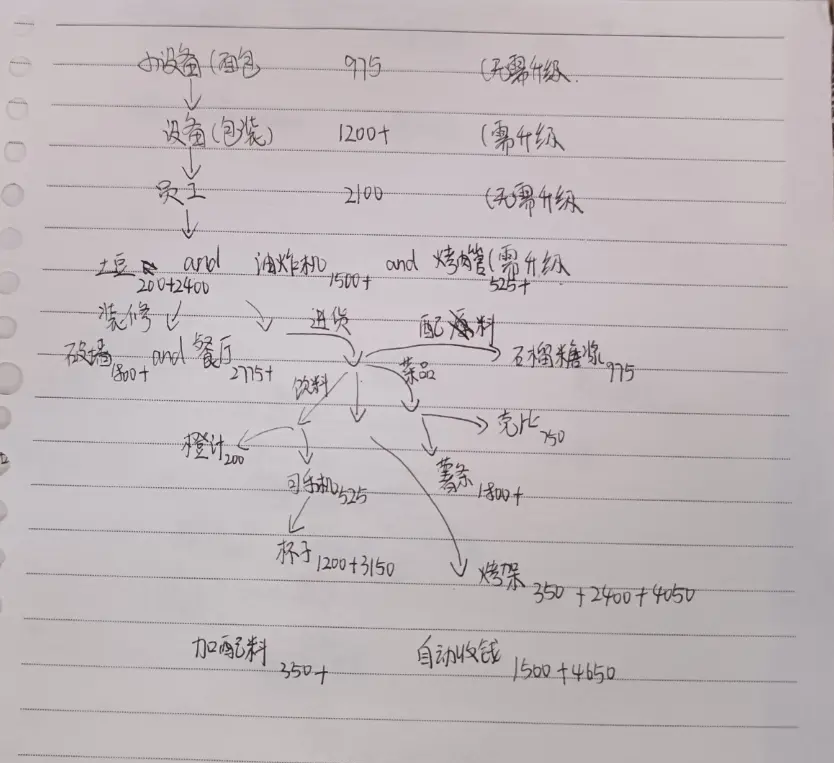 小设备(面包 975 (无需升级.
设备(包装) 1200+ (需升级
员工 2100 (无需升级
土豆 200+2400 and 油炸机 1500+ and 烤肉管 525+ (需升级
装修 进货 配料
砍墙 1800+ and 餐厅 2775+ 石榴糖浆 975
饮料 菜品
壳比 750
橙汁 200
薯条 1800+
可乐机 525
杯子 1200+3150
烤架 350+2400+4050
加配料 350+ 自动收钱 1500+4650